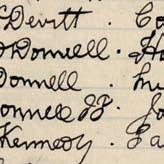 Devitt. C
O'Donnell. Ho
Donnell.
onnell JJ. Jo
Kennedy.